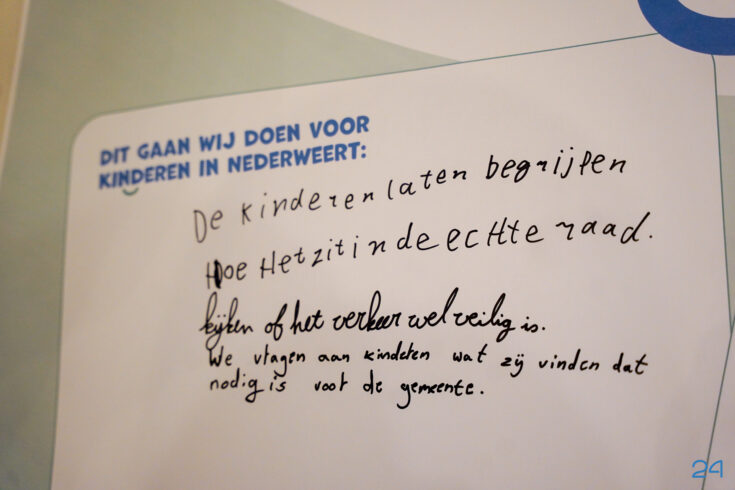 DIT GAAN WIJ DOEN VOOR
KINDEREN IN NEDERWEERT:
De kinderen laten begrijpen
Hoe Het zit in de ecHte raad.
kijken of het verkeer wel veilig is.
We vragen aan kinderen wat zij vinden dat
nodig is voor de gemeente.
24